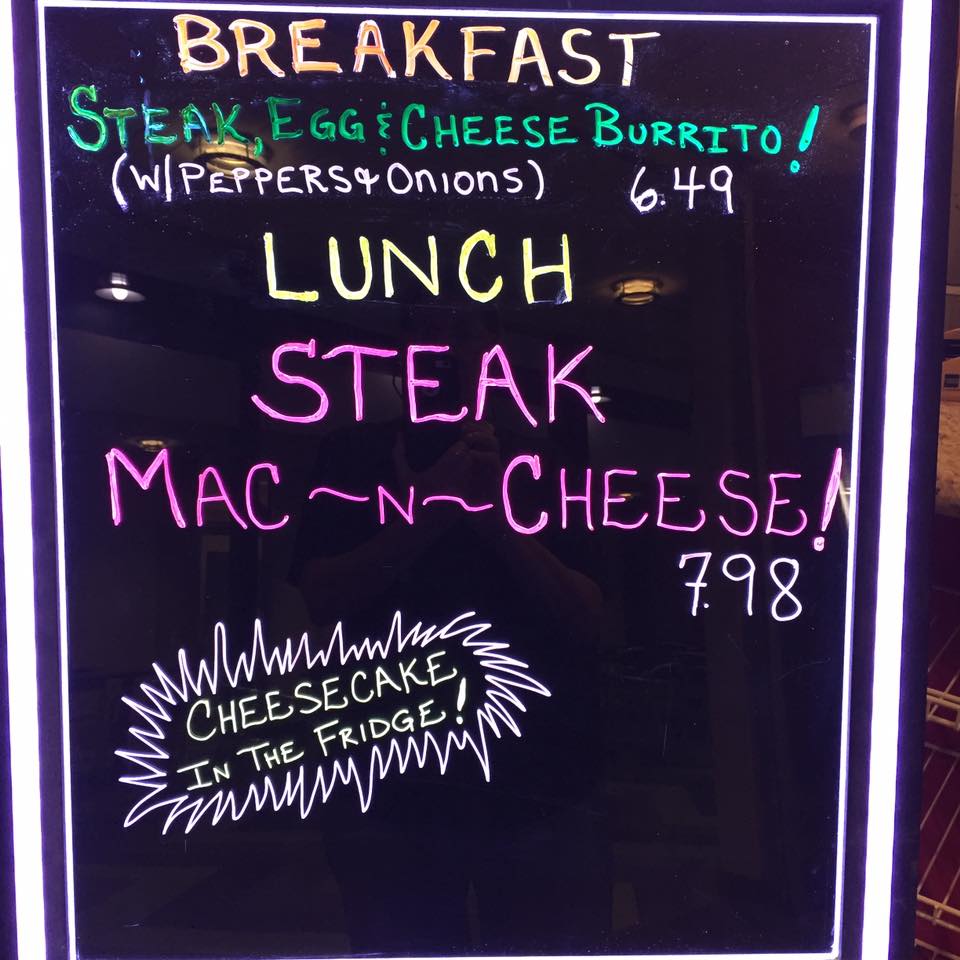 BREAKFAST
STEAK, EGG & CHEESE BURRITO!
(W/ PEPPERS & ONIONS) 6.49
LUNCH
STEAK
MAC ~N~ CHEESE!
7.98
CHEESECAKE
IN THE FRIDGE!